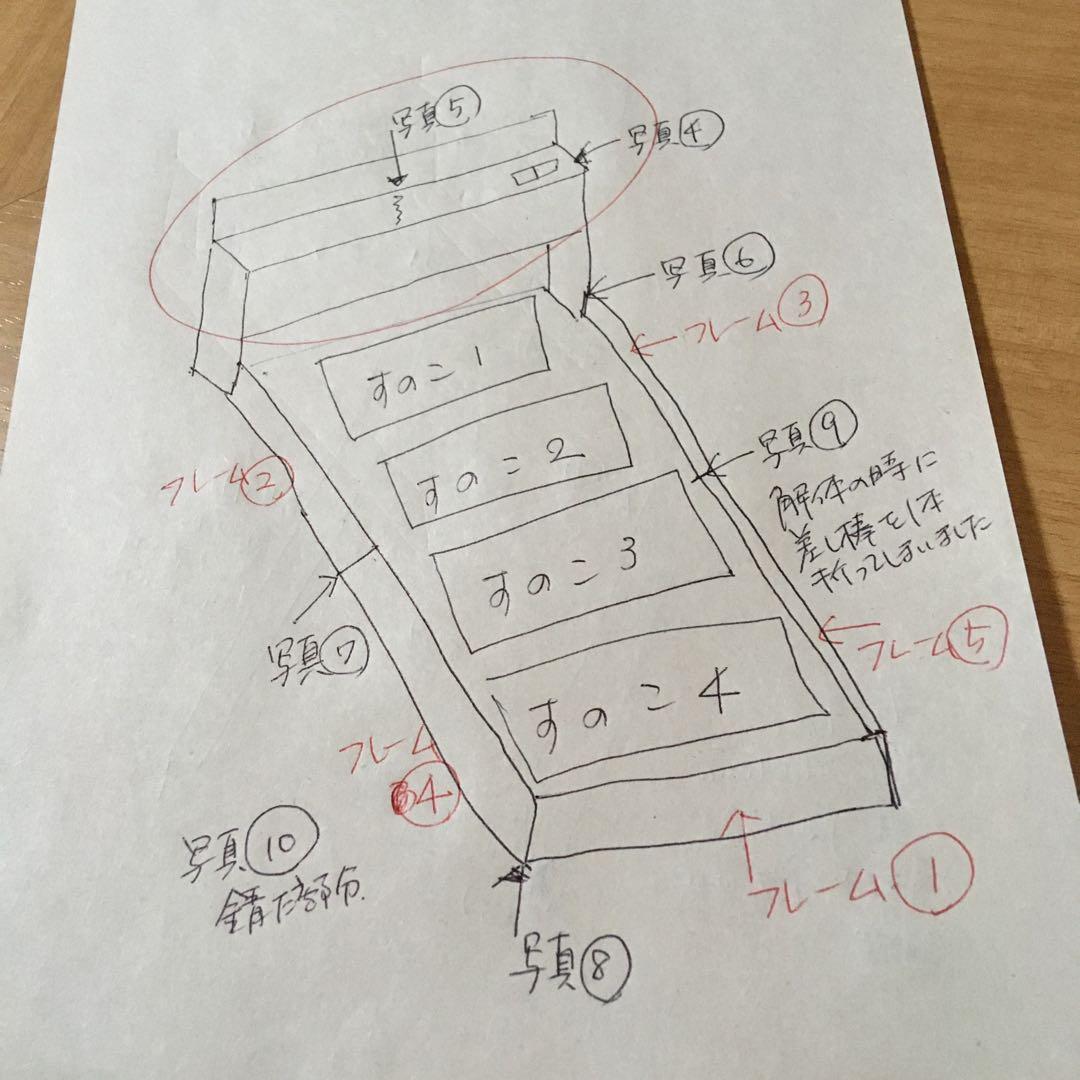 写真⑤
写真④
写真⑥
フレーム③
すのこ1
写真⑨
解体の時に
差し棒を1本
折ってしまいました
すのこ2
フレーム②
すのこ3
フレーム⑤
写真⑦
すのこ4
フレーム
④
写真⑩
錆た部分
フレーム①
写真⑧